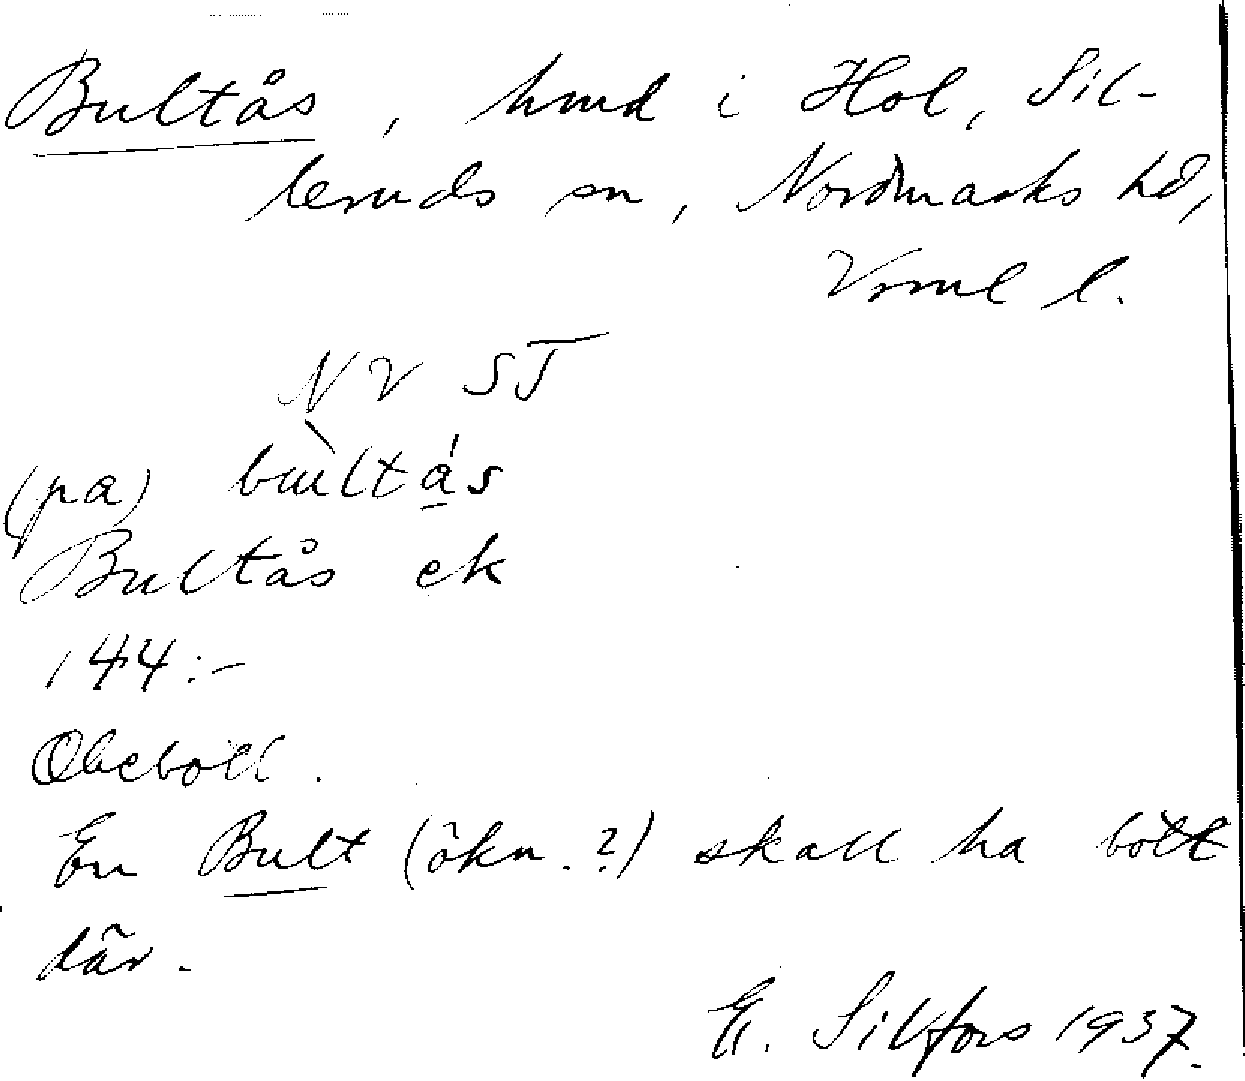 Bultås, hmd i Hol, Sil-
leruds sn, Nordmarks hd,
Vrml l.
NV ST
(pa) bu̇̀ltа̱́s
Bultås ek
144:-
Obebott.
En Bult (ökn.?) skall ha bott
där.
E. Silfors 1937.